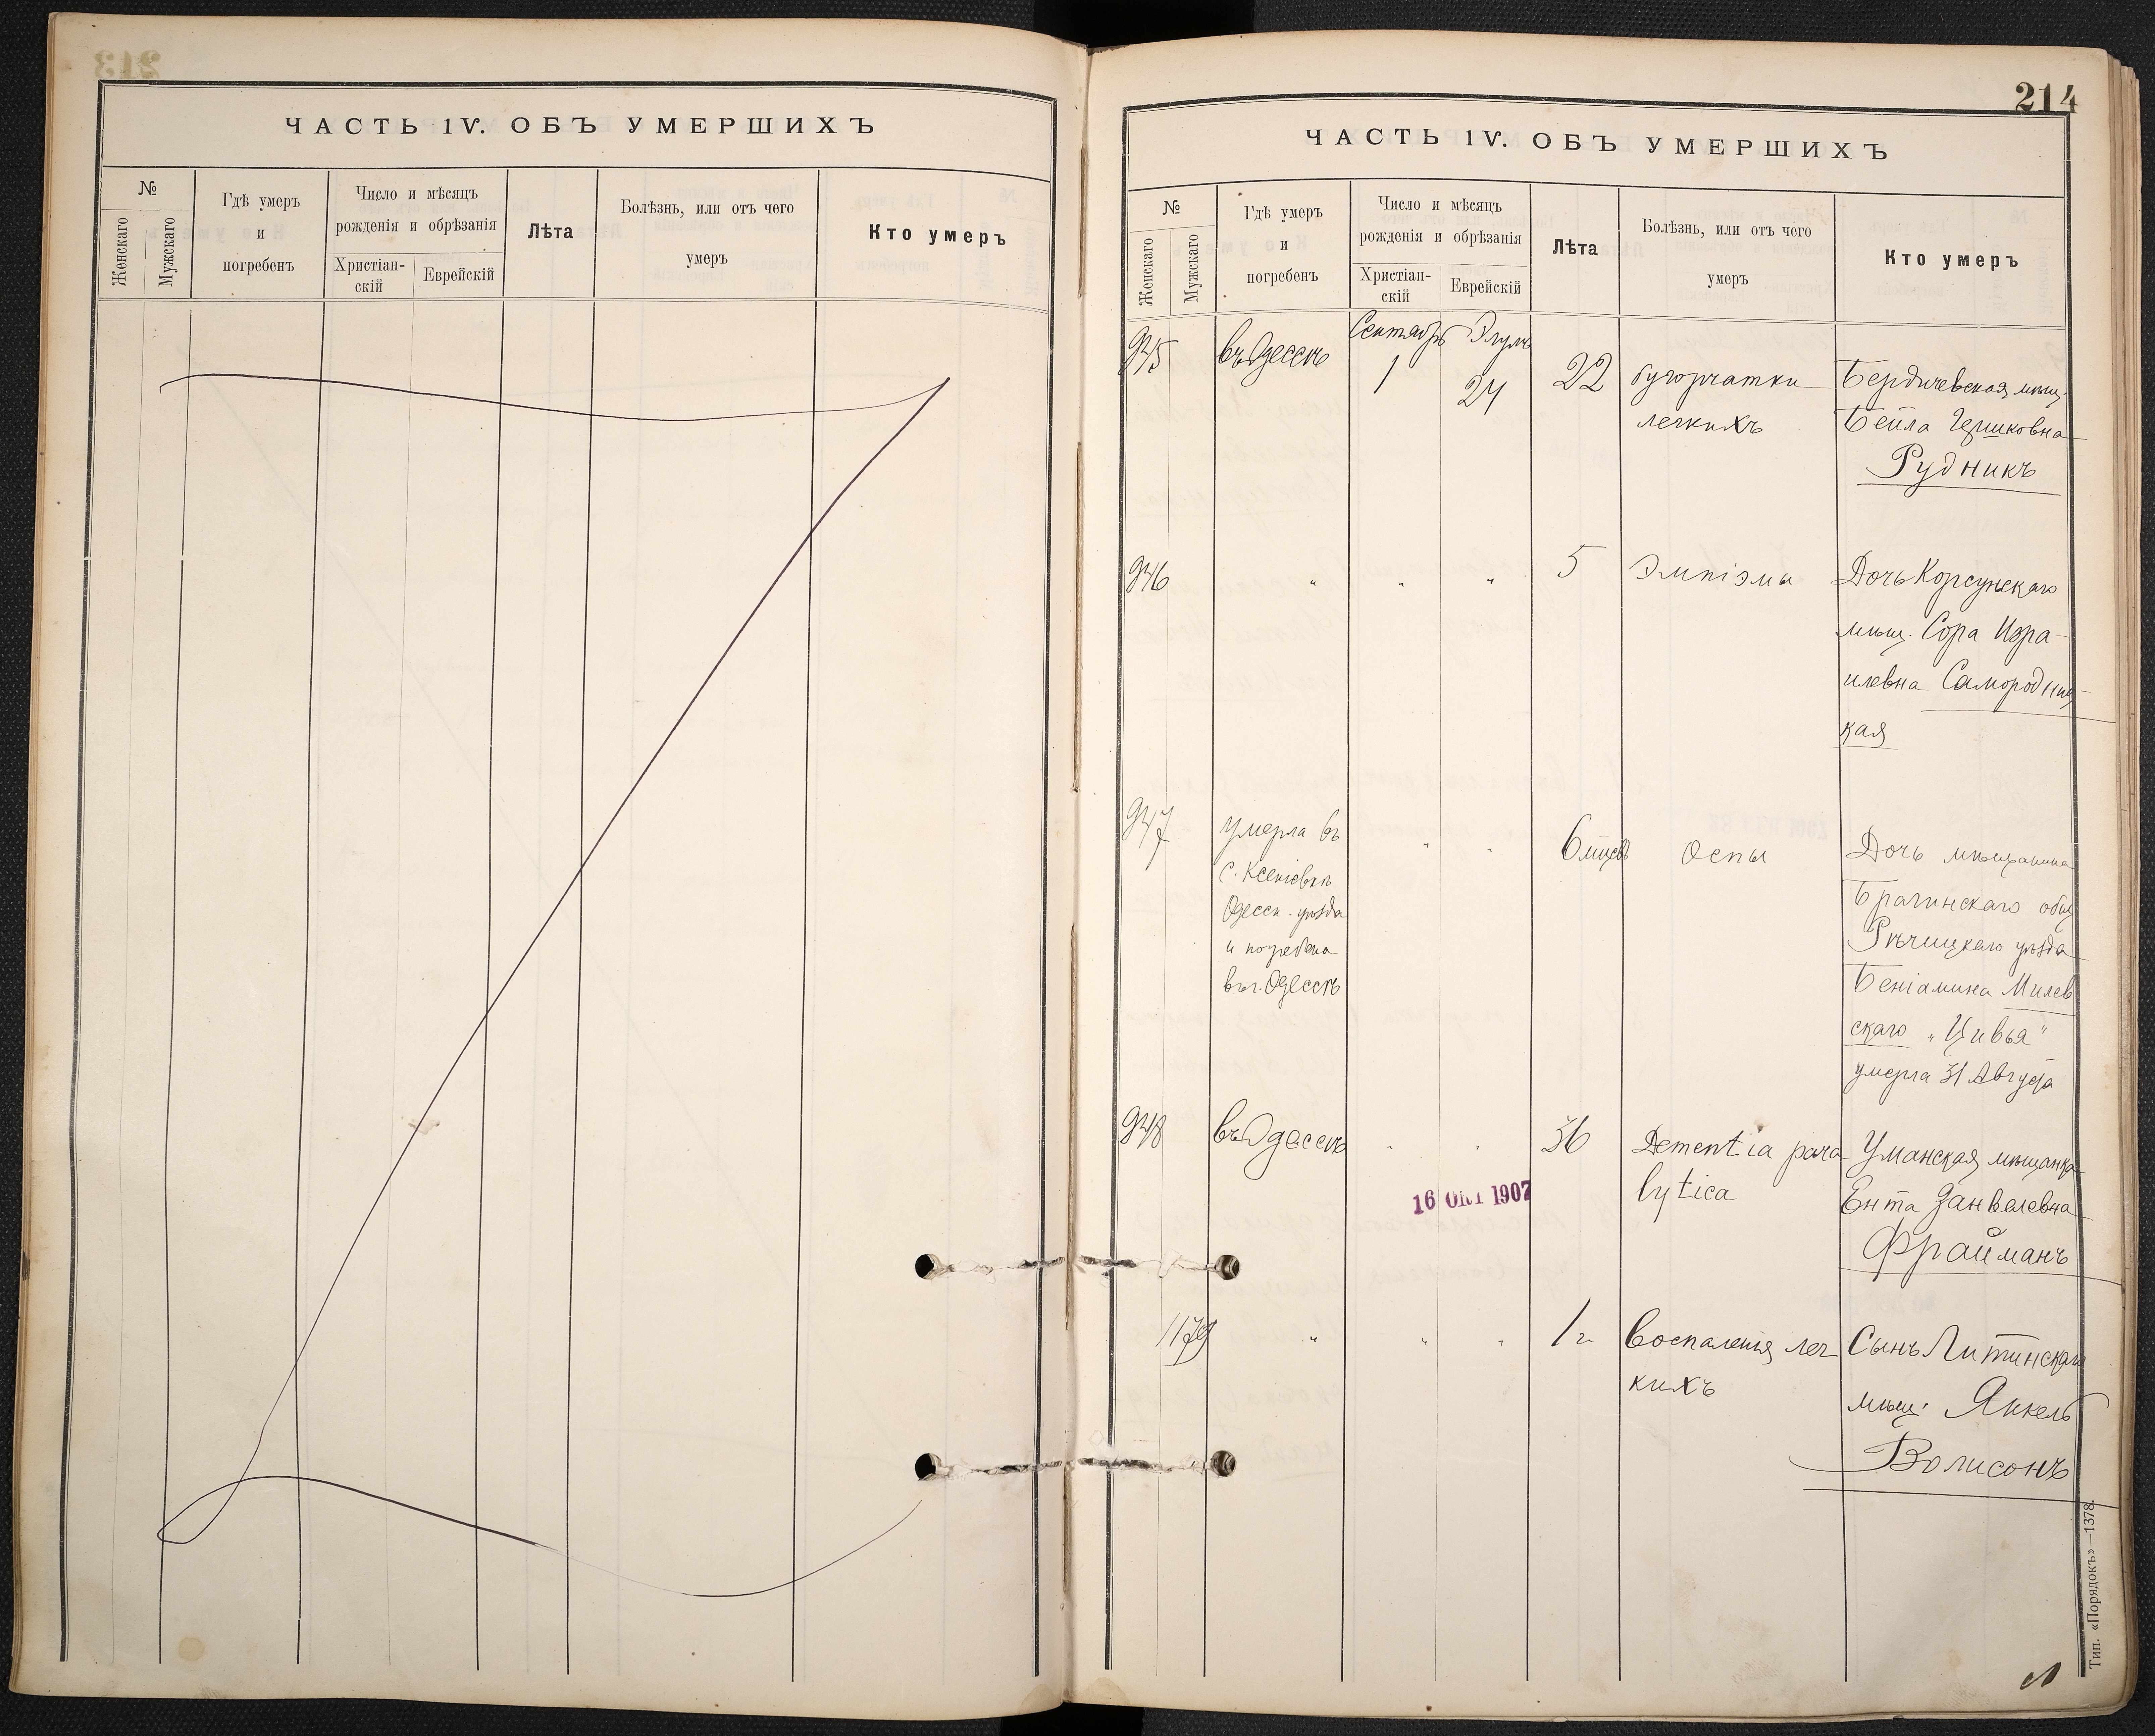 ЧАСТЬ IV. ОБЪ УМЕРШИХЪ
№
Женскаго
Мужскаго
Гдѣ умеръ
и
погребенъ
Число и мѣсяцъ
рожденія и обрѣзанія
Христіан-
скій
Еврейскій
Лѣта
Болѣзнь, или отъ чего
умеръ
Кто умеръ
214
ЧАСТЬ IV. ОБЪ УМЕРШИХЪ
№
Женскаго
Мужскаго
Гдѣ умеръ
и
погребенъ
Число и мѣсяцъ
рожденія и обрѣзанія
Христіан-
скій
Еврейскій
Лѣта
Болѣзнь, или отъ чего
умеръ
Кто умеръ
945
въ Одессѣ
Сентябрь
1
Элулъ
24
22
бугорчатки
легкихъ
Бердичевская мѣщ.
Бейла Гершковна
Рудникъ
946
"
"
"
5
Эмпіэмы
Дочь Корсунскаго
мѣщ. Сора Изра-
илевна Самородниц-
кая
947
умерла въ
с. Ксеніевкѣ
Одесск. уѣзда
и погребена
въ г. Одессѣ
"
"
6 мѣсяц
Оспы
Дочь мѣщанина
Брагинскаго общ
Рѣчицкаго уѣзда
Беніамина Милев
скаго „Цивья"
умерла 31 Августа
948
въ Одессѣ
"
"
36
Dementia para
lytica
Уманская мѣщанка
Ента Занвелевна
Фрайманъ
16 ОКТ 1907
1179
"
"
"
1 г
Воспаленія лег
кихъ
Сынъ Литинскаго
мѣщ. Янкель
Волисонъ
Тип. «Порядокъ»—1378.